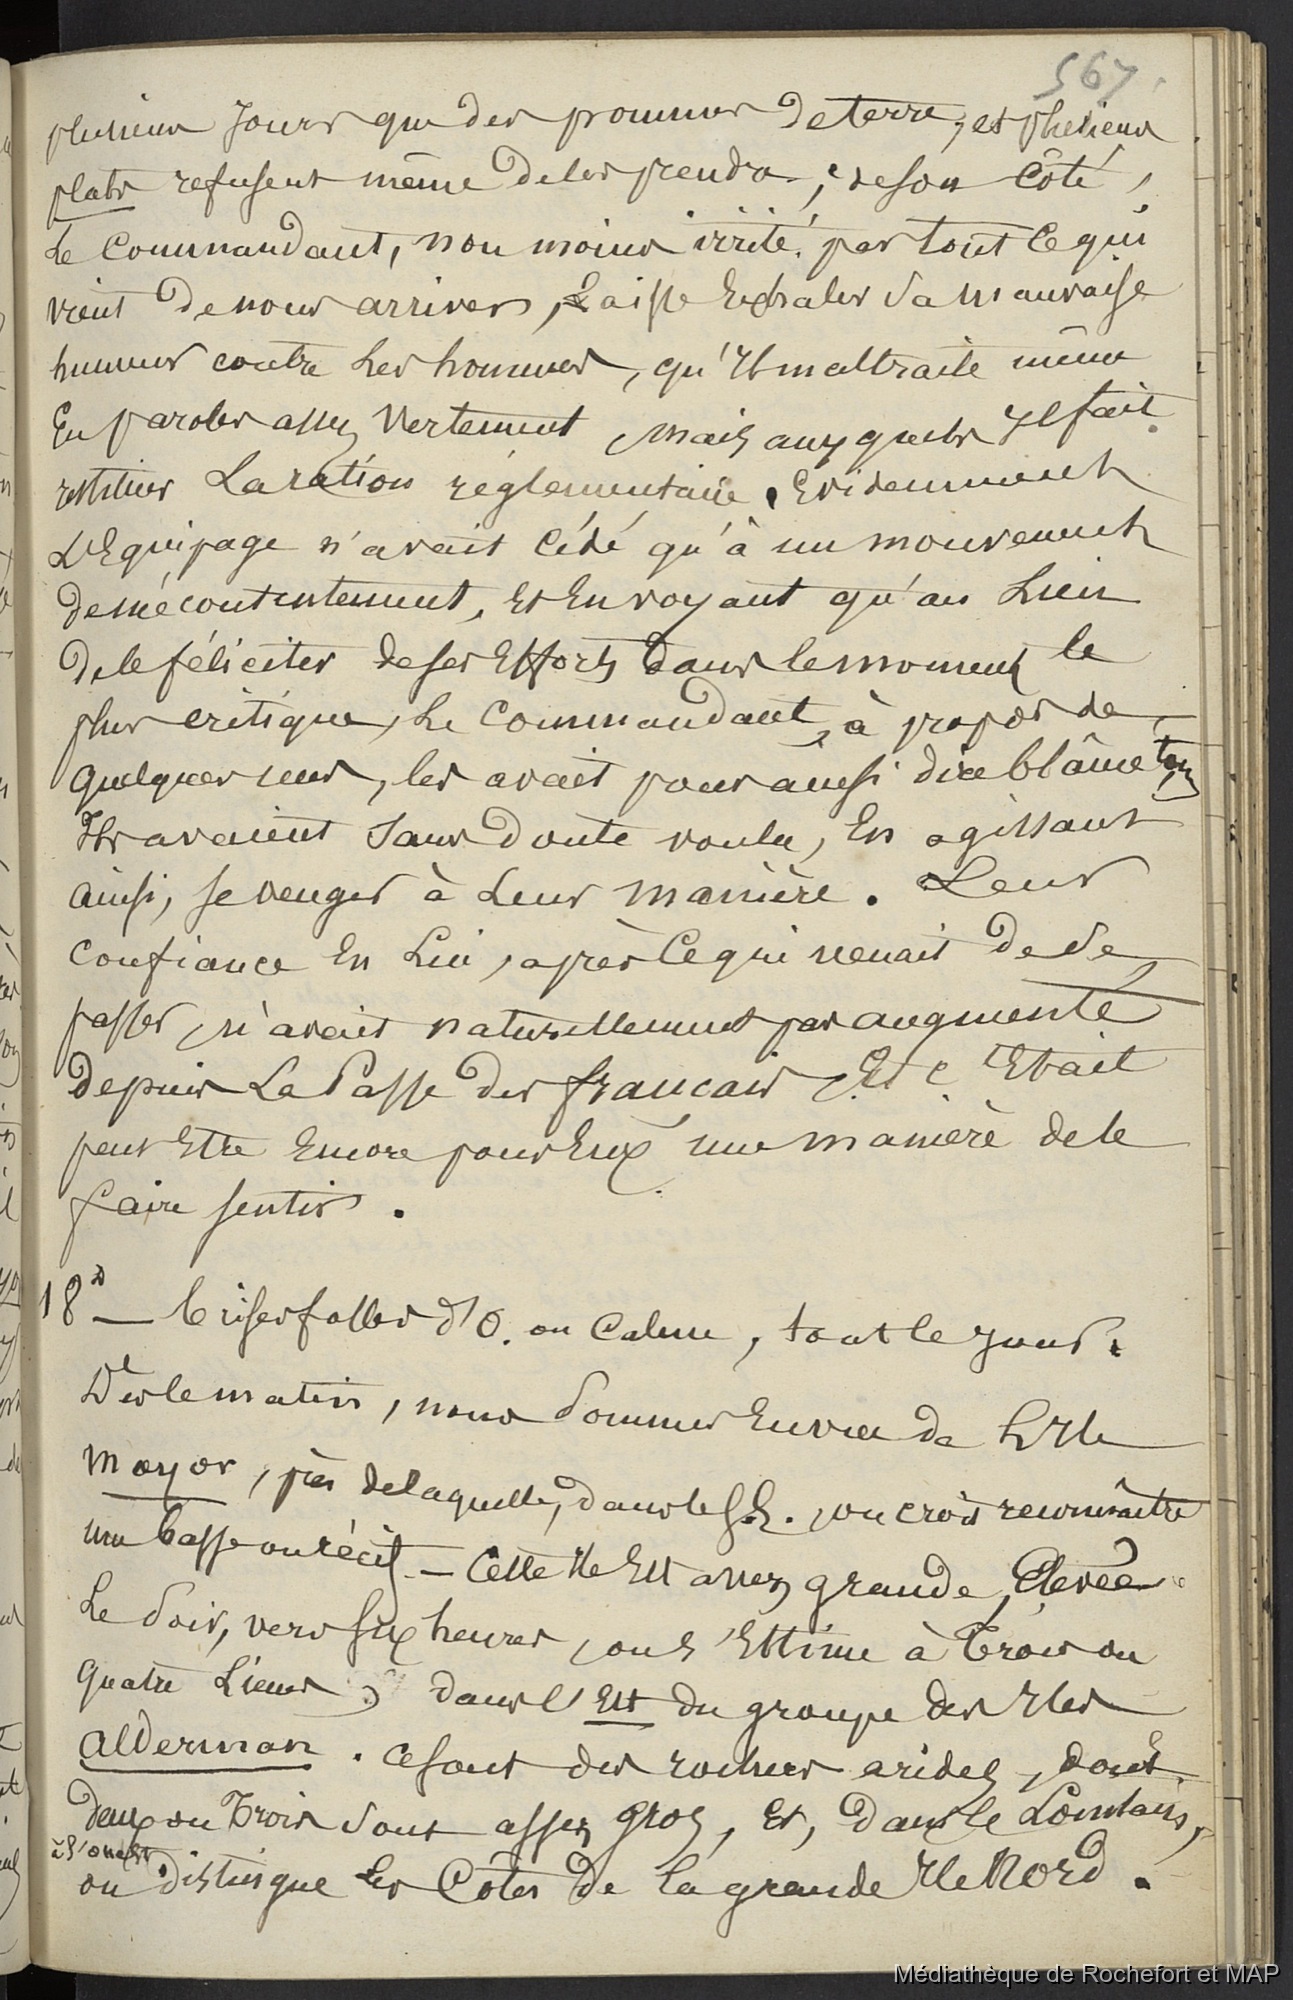 567.
plusieurs Jours que des pommes De terre, et plusieurs
plats refusent même de les prendre, ; de son Côté,
Le Commandant, non moins irrité, par tout Ce qui
vient De nous arriver, Laisse Exhaler Sa Mauvaise
humeur contre Les hommes, qu'Il maltraite même
En paroles assez Vertement, mais auxquels Il fait
restituer La ration réglementaire. Evidemment
L'Equipage n'avait Cédé qu'à un mouvement
de mécontentement, Et En voyant qu'au Lieu
De le féliciter de ses Efforts Dans le moment le
plus critique, Le Commandant, à propos de
quelques uns, les avait pour ainsi dire blâmé tous
Ils avaient Sans Doute voulu, En agissant
ainsi, se venger à Leur Manière. Leur
Confiance En Lui, après Ce qui venait De Se
passer, n'avait naturellement pas augmenté
Depuis La Passe des français, Et C'Etait
peut Etre Encore pour Eux une manière de le
faire sentir.
18 — brises folles d'O. ou Calme, tout le jour.
Dès le matin, nous Sommes En vue de L'Ile
Mayor, près de laquelle, dans le S.E., on croit reconnaître
une basse ou récif — Cette Ile Est assez grande, Elevée
Le Soir, vers Six heures, on L'Estime à Trois ou
quatre Lieues, dans l'Est du groupe des Iles
Alderman. Ce sont des rochers arides, dont
Deux ou Trois Sont assez Gros, Et, Dans le Lointain,
à l'ouest
on Distingue les Côtes De la grande Ile Nord.
Médiathèque de Rochefort et MAP